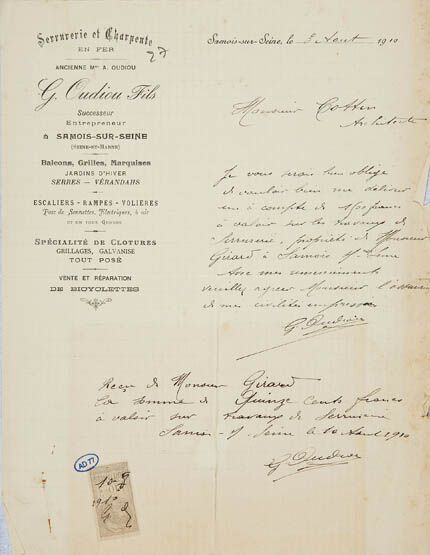 Serrurerie et Charpente
EN FER
27
ANCIENNE Mon A. OUDIOU
G. Oudiou Fils
Successeur
Entrepreneur
à SAMOIS-SUR-SEINE
(SEINE-ET-MARNE)
Balcons, Grilles, Marquises
JARDINS D'HIVER
SERRES – VÉRANDAHS
ESCALIERS - RAMPES - VOLIÈRES
Pose de Sonnettes, Électriques, à air
ET EN TOUS GENRES
SPÉCIALITÉ DE CLOTURES
GRILLAGES, GALVANISE
TOUT POSÉ
VENTE ET RÉPARATION
DE BICYCLETTES
Samois-sur-Seine, le Aout 1910
Monsieur Cottin
Architecte
Je vous serais bien obligé
de vouloir bien me délivrer
un à compte de francs
à valoir sur les travaux de
Serrurerie, propriété de Monsieur
Girard à Samois s/ Seine
Avec mes remerciements
veuillez agréer Monsieur
de mes civilités empressées
G Oudiou
Reçu de Monsieur Girard
la somme de Quinze cents francs
à valoir sur travaux de Serrurerie
Samois s/ Seine le 10 Aout 1910
G Oudiou
AD 77
10
1910